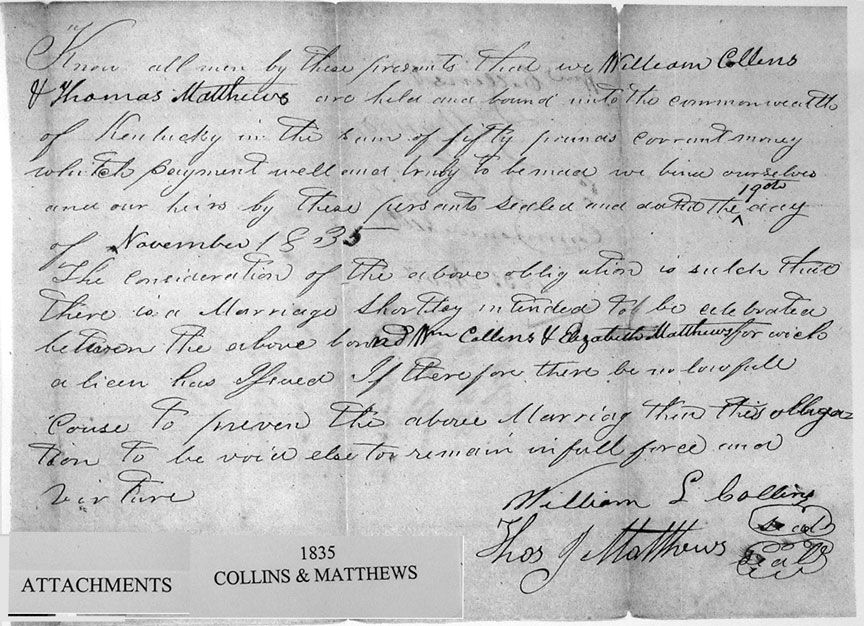 Know all men by these presents that we William Collens
& Thomas Matthews are held and bound unto the commonwealth
of Kentucky in the sum of fifty pounds corrant money
whitch payment well and truly to be mad we bind ourselves
and our heirs by these persants sealed and dated the ^ 19th day
of November 1835
The consideration of the above obligation is sutch that
there is a Marriage shortley intinded to be celebrated
between the above bound Wm Collens & Elizabeth Matthews for wich
a licen has Issued If therefore there be no lowfull
couse to preven the above Marriag then this obliga=
tion to be void else to remain in full force and
virture
William L Collins
Seal
Thos J Matthews
Seal
ATTACHMENTS
1835
COLLINS & MATTHEWS